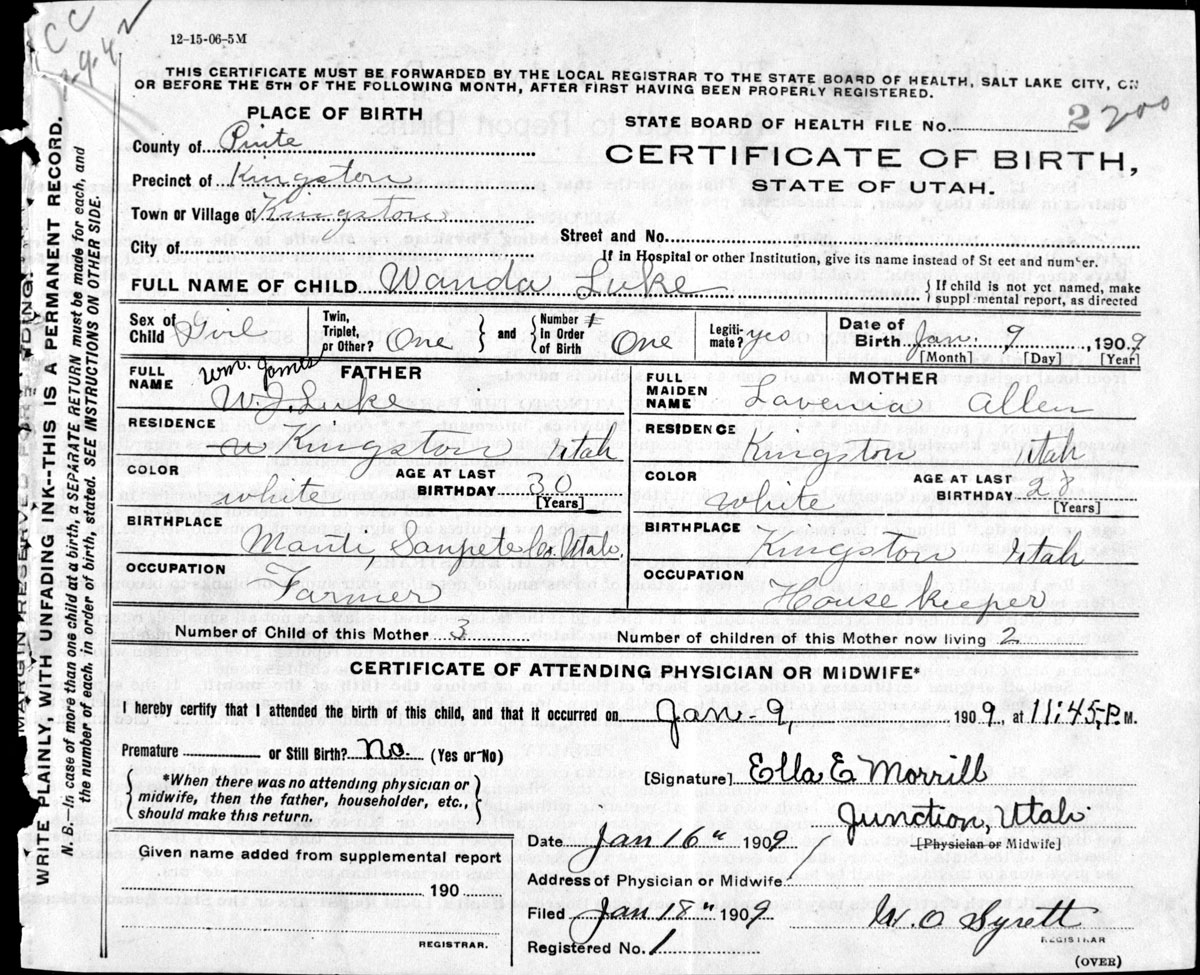 12-15-06-5M
THIS CERTIFICATE MUST BE FORWARDED BY THE LOCAL REGISTRAR TO THE STATE BOARD OF HEALTH, SALT LAKE CITY, ON
OR BEFORE THE 5TH OF THE FOLLOWING MONTH, AFTER FIRST HAVING BEEN PROPERLY REGISTERED.
PLACE OF BIRTH
STATE BOARD OF HEALTH FILE No. 2 200
County of Piute
CERTIFICATE OF BIRTH,
Precinct of Kingston
STATE OF UTAH.
Town or Village of Kingston
Street and No.
City of
If in Hospital or other Institution, give its name instead of St eet and num er.
FULL NAME OF CHILD Wanda Luke
If child is not yet named, make
suppl mental report, as directed
Sex of Child Girl
Twin, Triplet, or Other? One
and
Number In Order of Birth One
Legiti-mate? yes
Date of Birth Jan. 9, 1909
[Month] [Day] [Year]
FATHER
FULL NAME Wm. James
W. J. Luke
RESIDENCE
Kingston Utah
COLOR white
AGE AT LAST BIRTHDAY 30
[Years]
BIRTHPLACE
Manti Sanpete Co. Utah.
OCCUPATION
Farmer
MOTHER
FULL MAIDEN NAME Lavenia Allen
RESIDENCE
Kingston Utah
COLOR white
AGE AT LAST BIRTHDAY 28
[Years]
BIRTHPLACE
Kingston Utah
OCCUPATION
House keeper
Number of Child of this Mother 3
Number of children of this Mother now living 2
CERTIFICATE OF ATTENDING PHYSICIAN OR MIDWIFE*
I hereby certify that I attended the birth of said child, and that it occurred on Jan. 9, 1909, at 11:45, P.M.
Premature or Still Birth? No. (Yes or No)
*When there was no attending physician or
midwife, then the father, householder, etc.,
should make this return.
[Signature] Ella E Morrill
Junction, Utah
[Physician or Midwife]
Date Jan 16" 1909
Given name added from supplemental report
190
REGISTRAR.
Address of Physician or Midwife
Filed Jan 18" 1909
W. O Syrett
REGISTRAR
Registered No. 1
(OVER)
MARGIN RESERVED FOR BINDING.
WRITE PLAINLY, WITH UNFADING INK--THIS IS A PERMANENT RECORD.
N. B. In case of more than one child at a birth, a SEPARATE RETURN must be made for each, and
the number of each. in order of birth, stated. SEE INSTRUCTIONS ON OTHER SIDE.